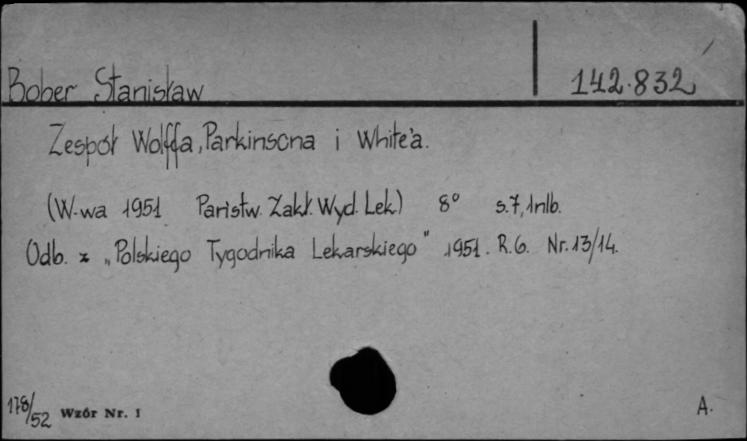 Bober Stanisław 142.832
Zespół Wolffa, Parkinsona i White'a.
(W-wa 1951 Państw. Zakł. Wyd. Lek.) 8° s. 7, 1nlb.
Odb. z „Polskiego Tygodnika Lekarskiego" 1951. R. 6. Nr. 13/14.
178/52 Wzór Nr. 1 A.